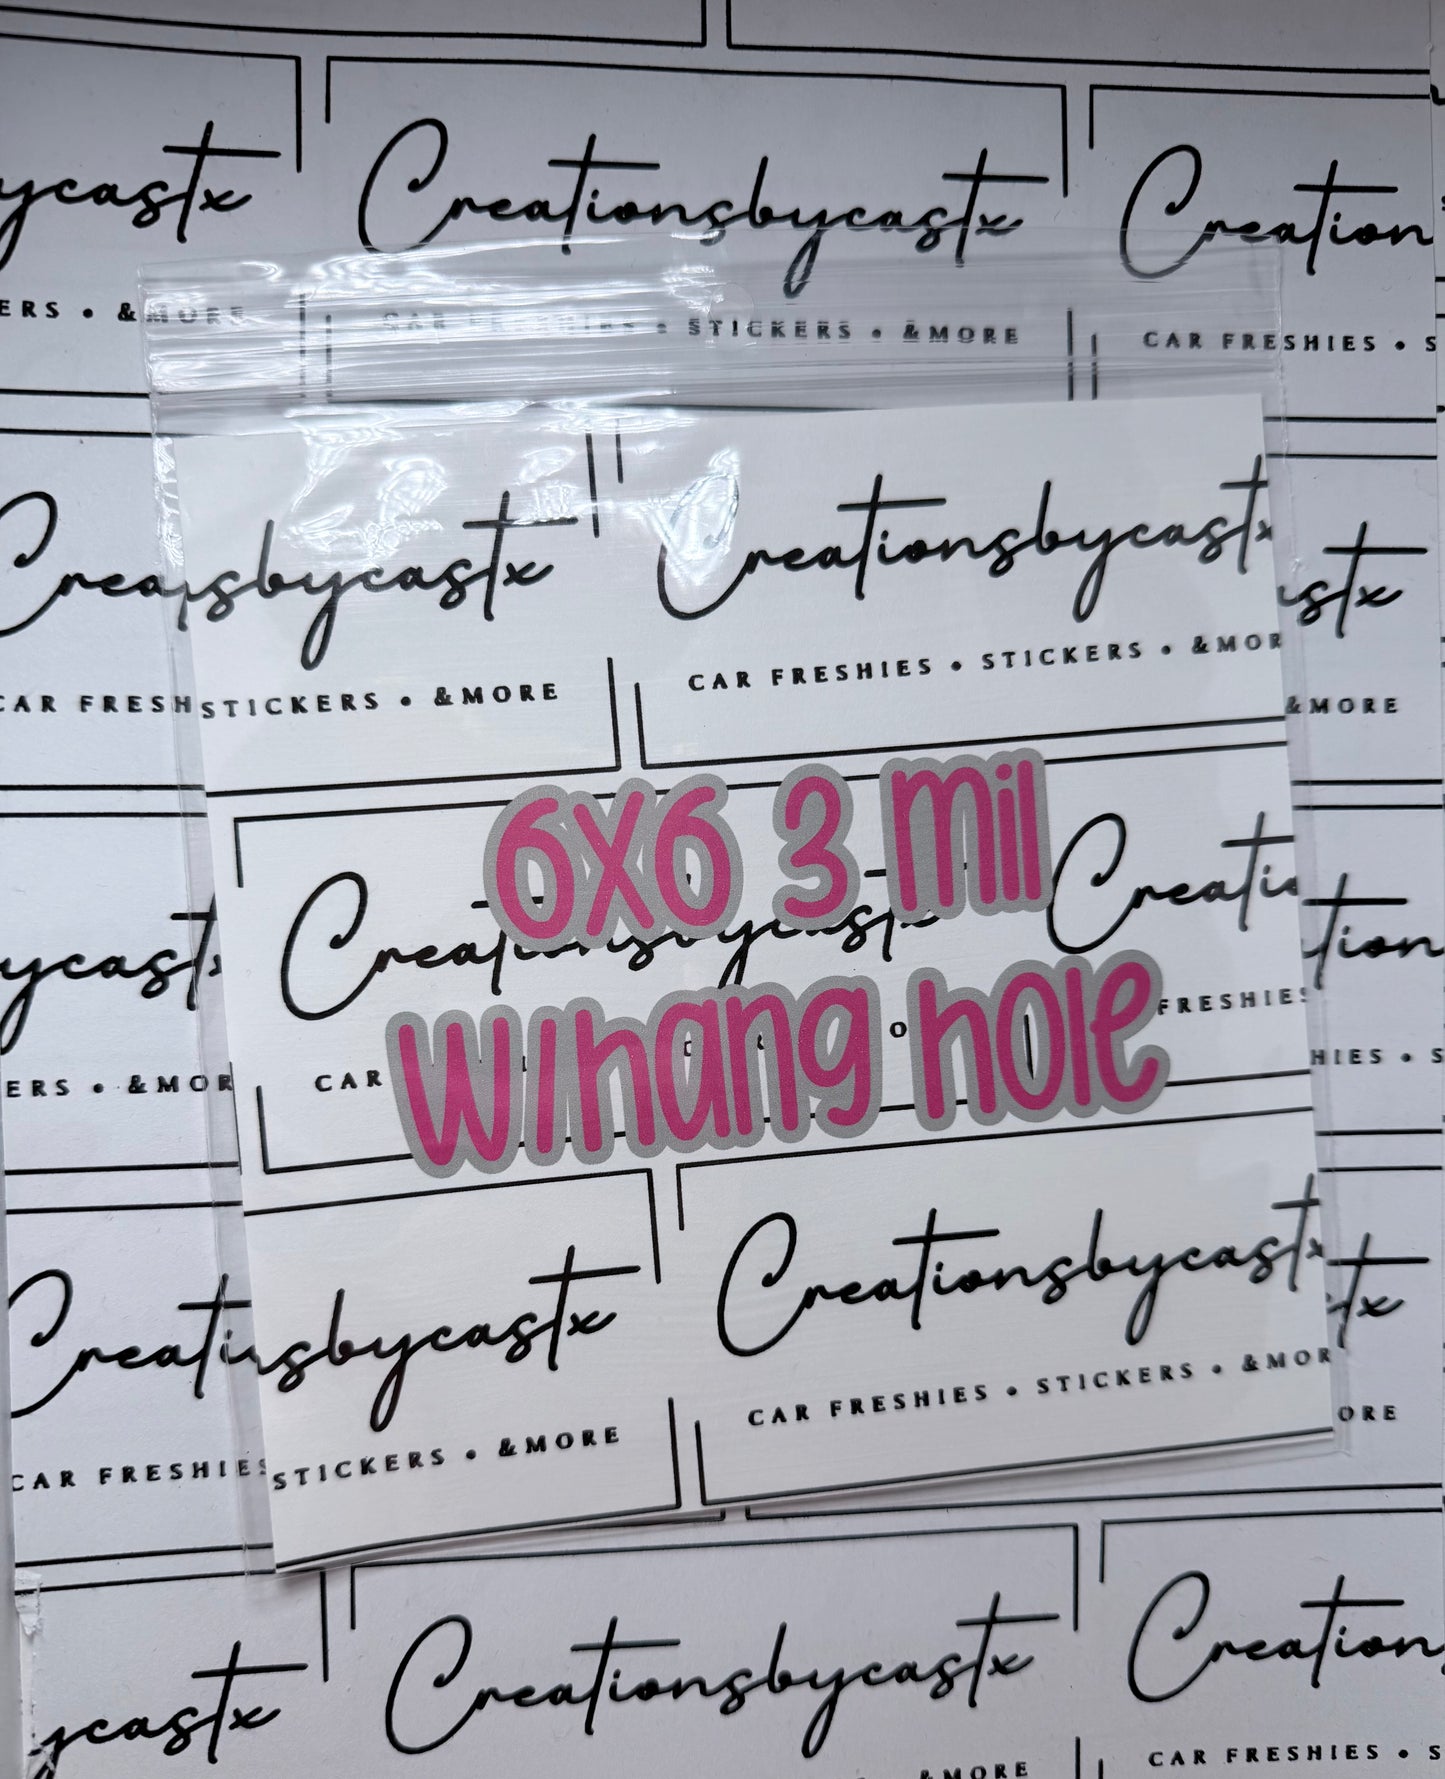 ycastx
Creationsbycastx
Creation
ERS • &MORE
CAR FRESHIES • STICKERS • &MORE
CAR FRESHIES • S
Crea
sbycastx
Creationsbycastx
stx
CAR FRESH
STICKERS • &MORE
CAR FRESHIES • STICKERS • &MOR
&MORE
6x6 3 mil
ycast
Creationsbycastx
Creati
tion
w/hang hole
ERS • &MOR
CAR
FRESHIES
HIES • S
Creati
sbycastx
Creationsbycastx
tx
CAR FRESHIES
STICKERS • &MORE
CAR FRESHIES • STICKERS • &MOR
ORE
ycastx
Creationsbycastx
Creations
&MORE
CAR FRESHIES • S